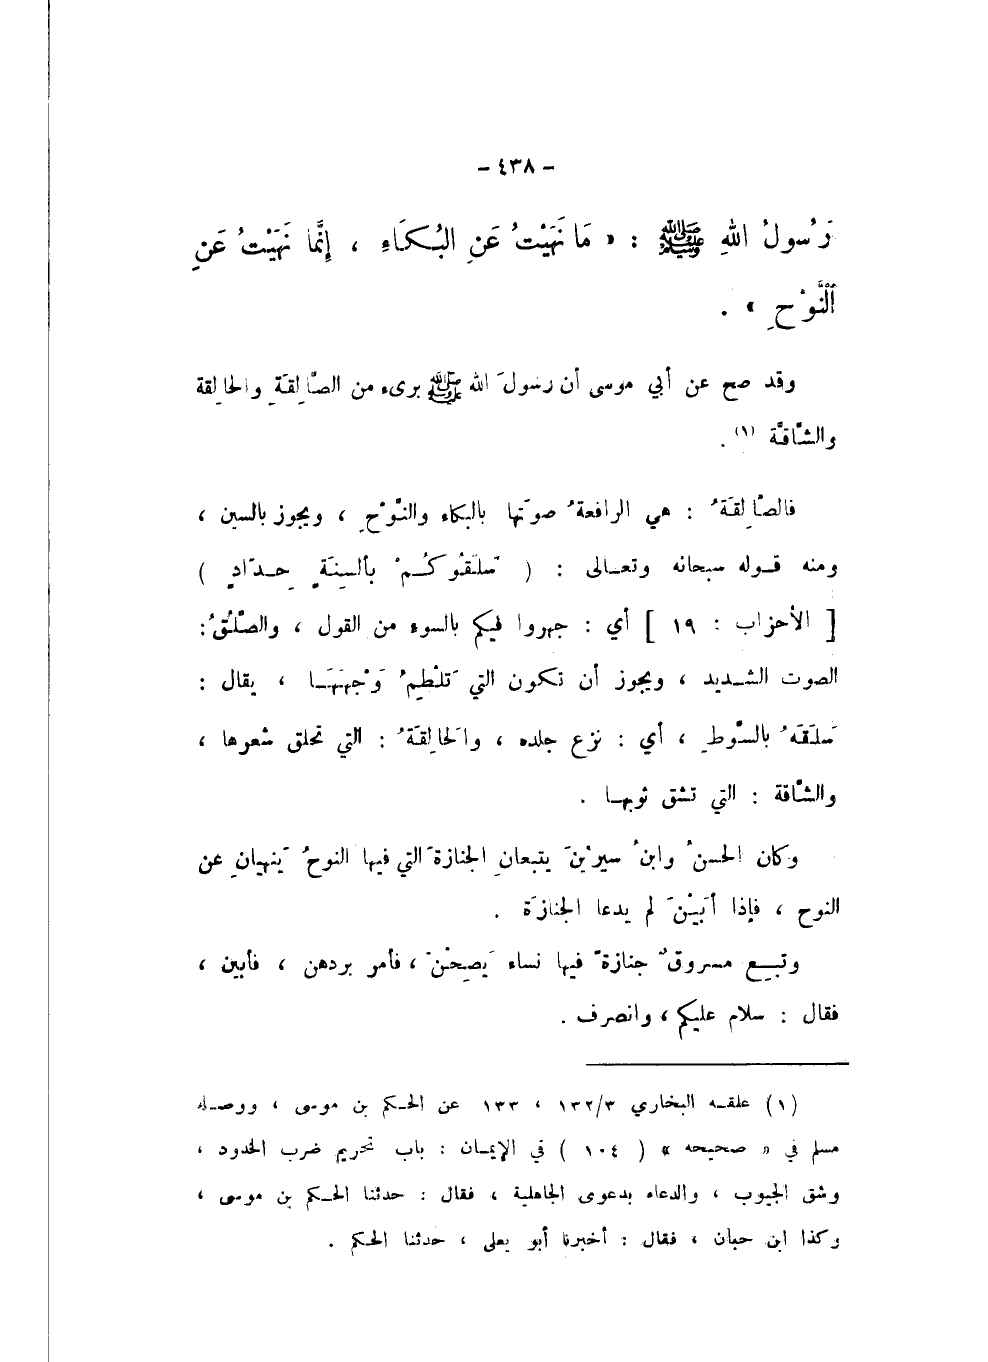 - ٤٣٨ -
رَسُولُ اللهِ ﷺ : « مَا نَهَيْتُ عَنِ البُكَاءِ ، إِنَّمَا نَهَيْتُ عَنِ
ٱلنَّوْحِ » .
وقد صح عن أبي موسى أن رسولَ الله ﷺ برىء من الصَّالِقَةِ والحالِقة
والشَّاقَّة (١) .
فالصَّالِقَةُ : هي الرافعةُ صوتَها بالبكاء والنَّوْحِ ، ويجوز بالسين ،
ومنه قوله سبحانه وتعالى : ( سَلَقُوكُمْ بأَلسِنَةٍ حِدَادٍ )
[ الأحزاب : ١٩ ] أي : جهروا فيكم بالسوء من القول ، والصَّلْقُ :
الصوت الشديد ، ويجوز أن تكون التي تَلْطِمُ وَجْهَهَا ، يقال :
سَلَقَهُ بالسَّوطِ ، أي : نزع جلده ، والحَالِقَةُ : التي تحلق شعورها ،
والشَّاقة : التي تشق ثوبها .
وكان الحسنُ وابنُ سيرينَ يتبعانِ الجنازةَ التي فيها النوحُ يَنهيانِ عن
النوح ، فإذا أَبَيْنَ لم يدعا الجنازَة .
وتبِع مسروقٌ جنازةً فيها نساء يَصِحْنَ ، فأمر بردهن ، فأبين ،
فقال : سلام عليكم ، وانصرف .
(١) علقه البخاري ١٣٢/٣ ، ١٣٣ عن الحكم بن موسى ، ووصله
مسلم في « صحيحه » ( ١٠٤ ) في الإيمان : باب تحريم ضرب الخدود ،
وشق الجيوب ، والدعاء بدعوى الجاهلية ، فقال : حدثنا الحكم بن موسى ،
وكذا ابن حبان ، فقال : أخبرنا أبو يعلى ، حدثنا الحكم .